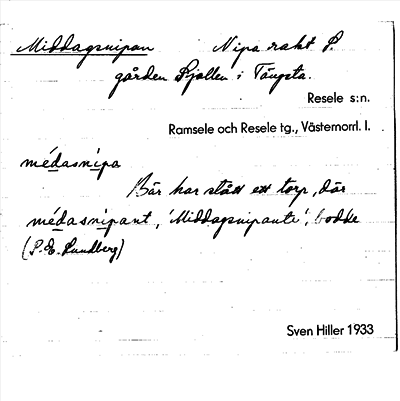 Middagsnipan Nipa rakt S.
gården Sjollen i Tängsta.
Resele s:n.
Ramsele och Resele tg., Västernorrl. l.
médasnìpa
Där har stått ett torp, där
médasnìpant, 'Middagsnipante', bodde
(P. E. Lundberg)
Sven Hiller 1933